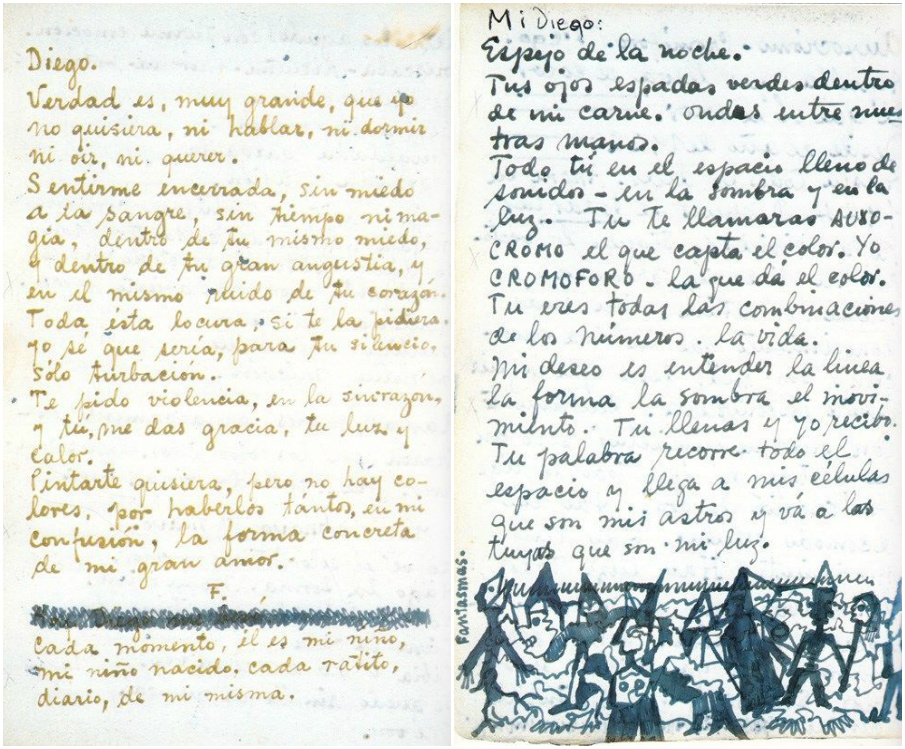 Diego.
Verdad es, muy grande, que yo
no quisiera, ni hablar, ni dormir
ni oir, ni querer.
Sentirme encerrada, sin miedo
a la sangre, sin tiempo ni ma-
gia, dentro de tu mismo miedo,
y dentro de tu gran angustia, y
en el mismo ruido de tu corazón.
Toda ésta locura, si te la pidiera,
yo sé que sería, para tu silencio,
sólo turbacion.
Te pido violencia, en la sinrazón,
y tú, me das gracia, tu luz y
calor.
Pintarte quisiera, pero no hay co-
lores, por haberlos tántos, en mi
confusión, la forma concreta
de mi gran amor.
F.
Diego
Cada momento, él es mi niño,
mi niño nacido, cada ratito,
diario, de mi misma.
Mi Diego:
Espejo de la noche.
Tus ojos espadas verdes dentro
de mi carne. ondas entre nues
tras manos.
Todo tú en el espacio lleno de
sonidos - en la sombra y en la
luz. Tu te llamaras AUXO-
CROMO el que capta el color. Yo
CROMOFORO - la que dá el color.
Tu eres todas las combinaciones
de los números. la vida.
Mi deseo es entender la linea
la forma la sombra el movi-
miento. Tu llenas y yo recibo.
Tu palabra recorre todo el
espacio y llega a mis células
que son mis astros y vá a las
tuyas que son mi luz.
Fantasmas.